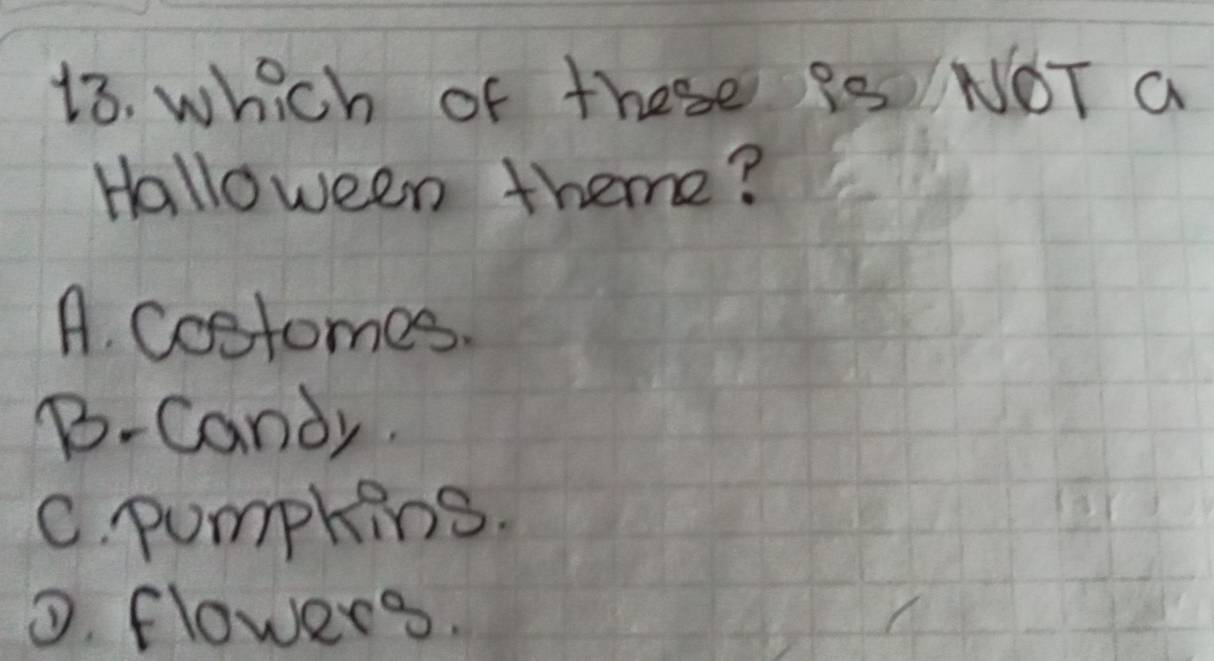 13. Which of these is NOT a
Halloween theme?
A. Costomes.
B. Candy.
C. pumpkins.
D. flowers.